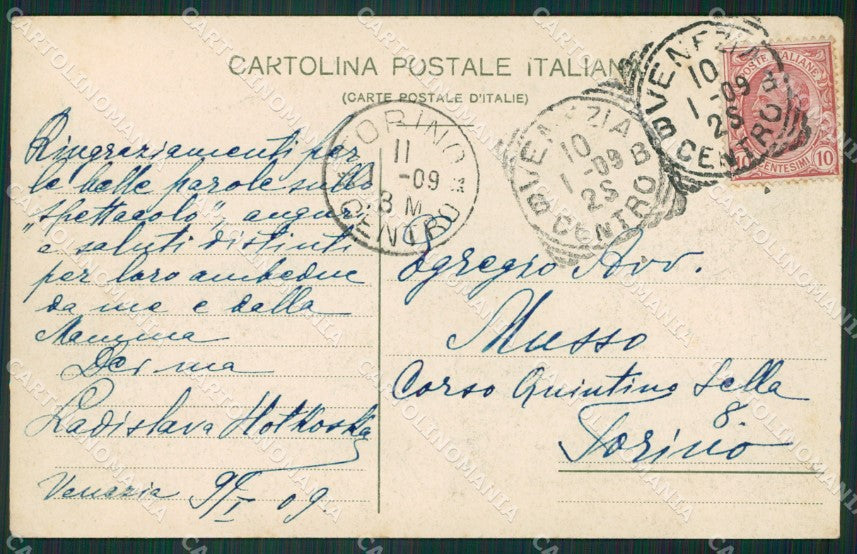 CARTOLINA POSTALE ITALIANA
(CARTE POSTALE D'ITALIE)
POSTE ITALIANE
CENTESIMI 10
VENEZIA
10
1-09
8 S
2S
CENTRO
VENEZIA
10
1-09
8 S
2S
CENTRO
TORINO
11
1-09
8 M
CENTRO
Ringraziamenti per
le belle parole sullo
"Spettacolo", auguri
e saluti distinti
per loro ambedue
da me e dalla
Mamma
Ladislava Hotkowska
Venezia 9/I 09
Egregio Avv.
Musso
Corso Quintino Sella
8
Torino
CARTOLINOMANIA